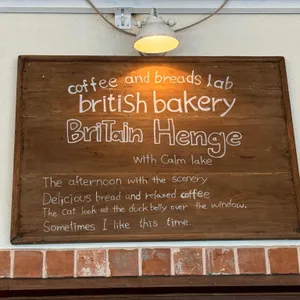 coffee and breads lab
british bakery
BriTain Henge
with Calm lake
The afternoon with the scenery
Delicious bread and relaxed coffee
The cat look at the duck belly over the window.
Sometimes I like this time.